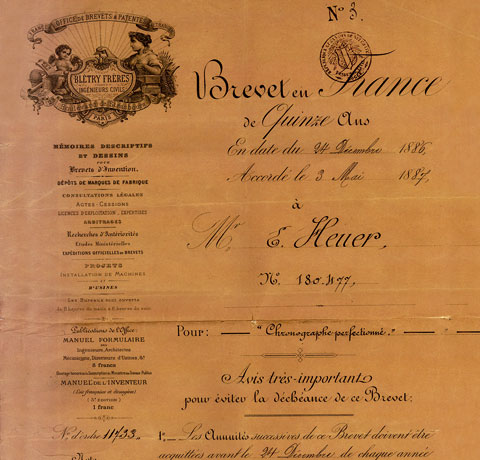 OFFICE DE BREVETS & PATENTES
FRANCE
BLÉTRY FRÈRES
INGÉNIEURS CIVILS
PARIS
MÉMOIRES DESCRIPTIFS
ET DESSINS
POUR
Brevets d'Invention.
DÉPÔTS DE MARQUES DE FABRIQUE
CONSULTATIONS LÉGALES
ACTES-CESSIONS
LICENCES D'EXPLOITATION, EXPERTISES
ARBITRAGES
Recherches d'Antériorités
Études Ministérielles
EXPÉDITIONS OFFICIELLES DE BREVETS
PROJETS
INSTALLATION DE MACHINES
ET
D'USINES
Les Bureaux sont ouverts
de 9 heures du matin à 6 heures du soir
Publications de l'Office:
MANUEL FORMULAIRE
des
Ingénieurs, Architectes
Mécaniciens, Directeurs d'Usines, &ª
8 francs
MANUEL DE L'INVENTEUR
(Lois françaises et étrangères)
(5e ÉDITION)
1 franc
Nº d'ordre 11733
Nº 3.
Brevet en France
de Quinze Ans
En date du 24 Décembre 1886,
Accordé le 3 Mai 1887,
à
Mr E. Heuer,
Nº 180.477.
Pour: — "Chronographe perfectionné." —
Avis très-important
pour éviter la déchéance de ce Brevet:
1º Les Annuités successives de ce Brevet doivent être
acquittées avant le 24 Décembre de chaque année